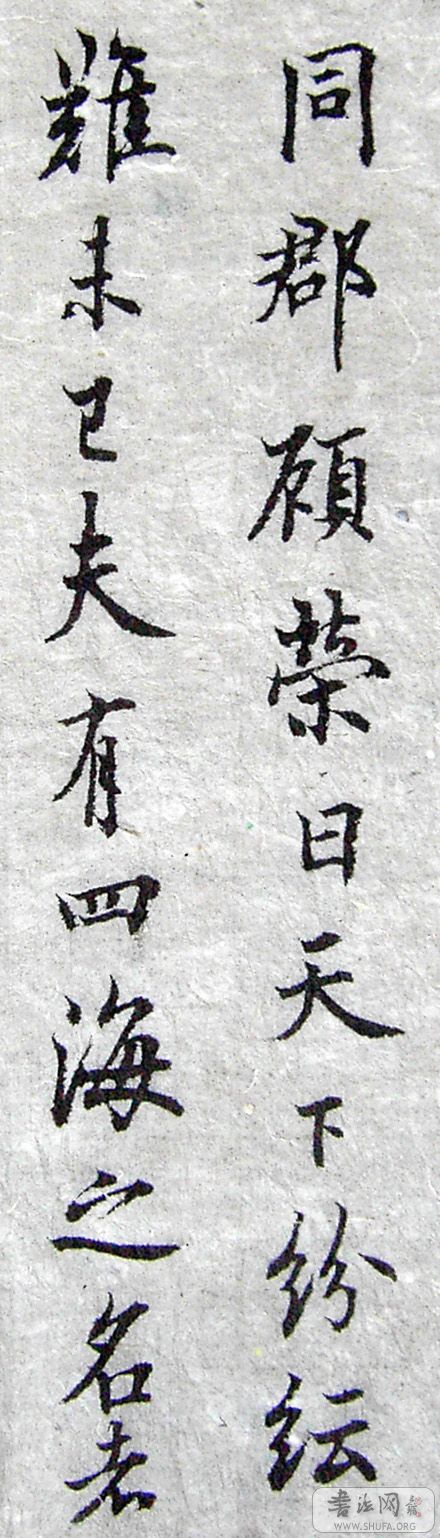 同郡顾荣曰天下纷纭
難未已夫有四海之名者
书法网
WWW.SHUFA.ORG